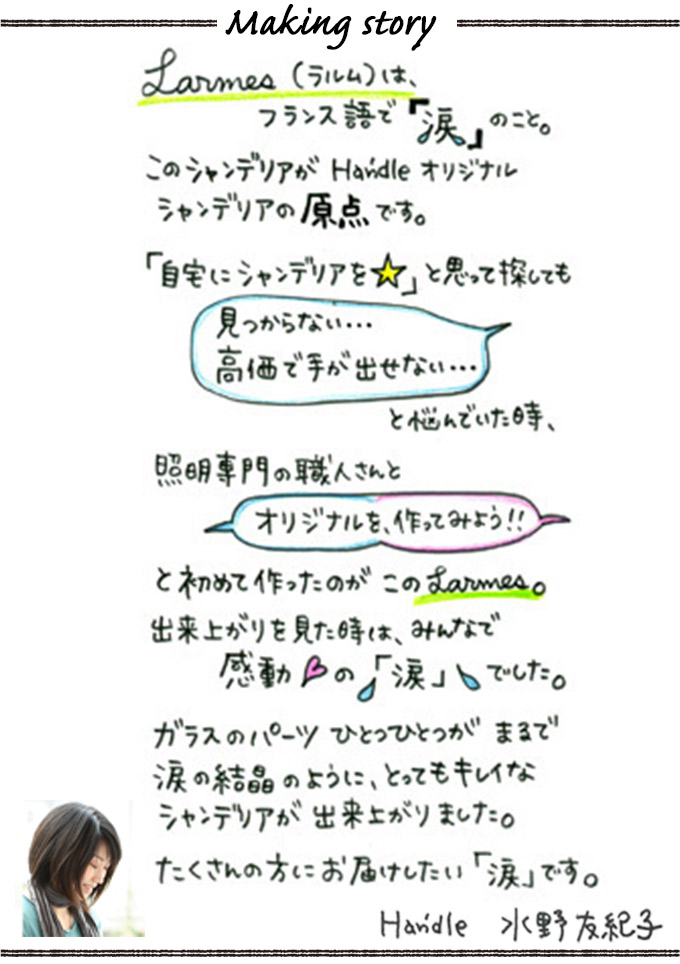 Making story
Larmes (ラルム)は、
フランス語で『涙』のこと。
このシャンデリアが Handle オリジナル
シャンデリアの原点です。
「自宅にシャンデリアを☆」と思って探しても
見つからない…
高価で手が出せない…
と悩んでいた時、
照明専門の職人さんと
オリジナルを、作ってみよう!!
と初めて作ったのが このLarmes。
出来上がりを見た時は、みんなで
感動の「涙」でした。
ガラスのパーツ ひとつひとつが まるで
涙の結晶のように、とってもキレイな
シャンデリアが 出来上がりました。
たくさんの方にお届けしたい「涙」です。
Handle 水野友紀子